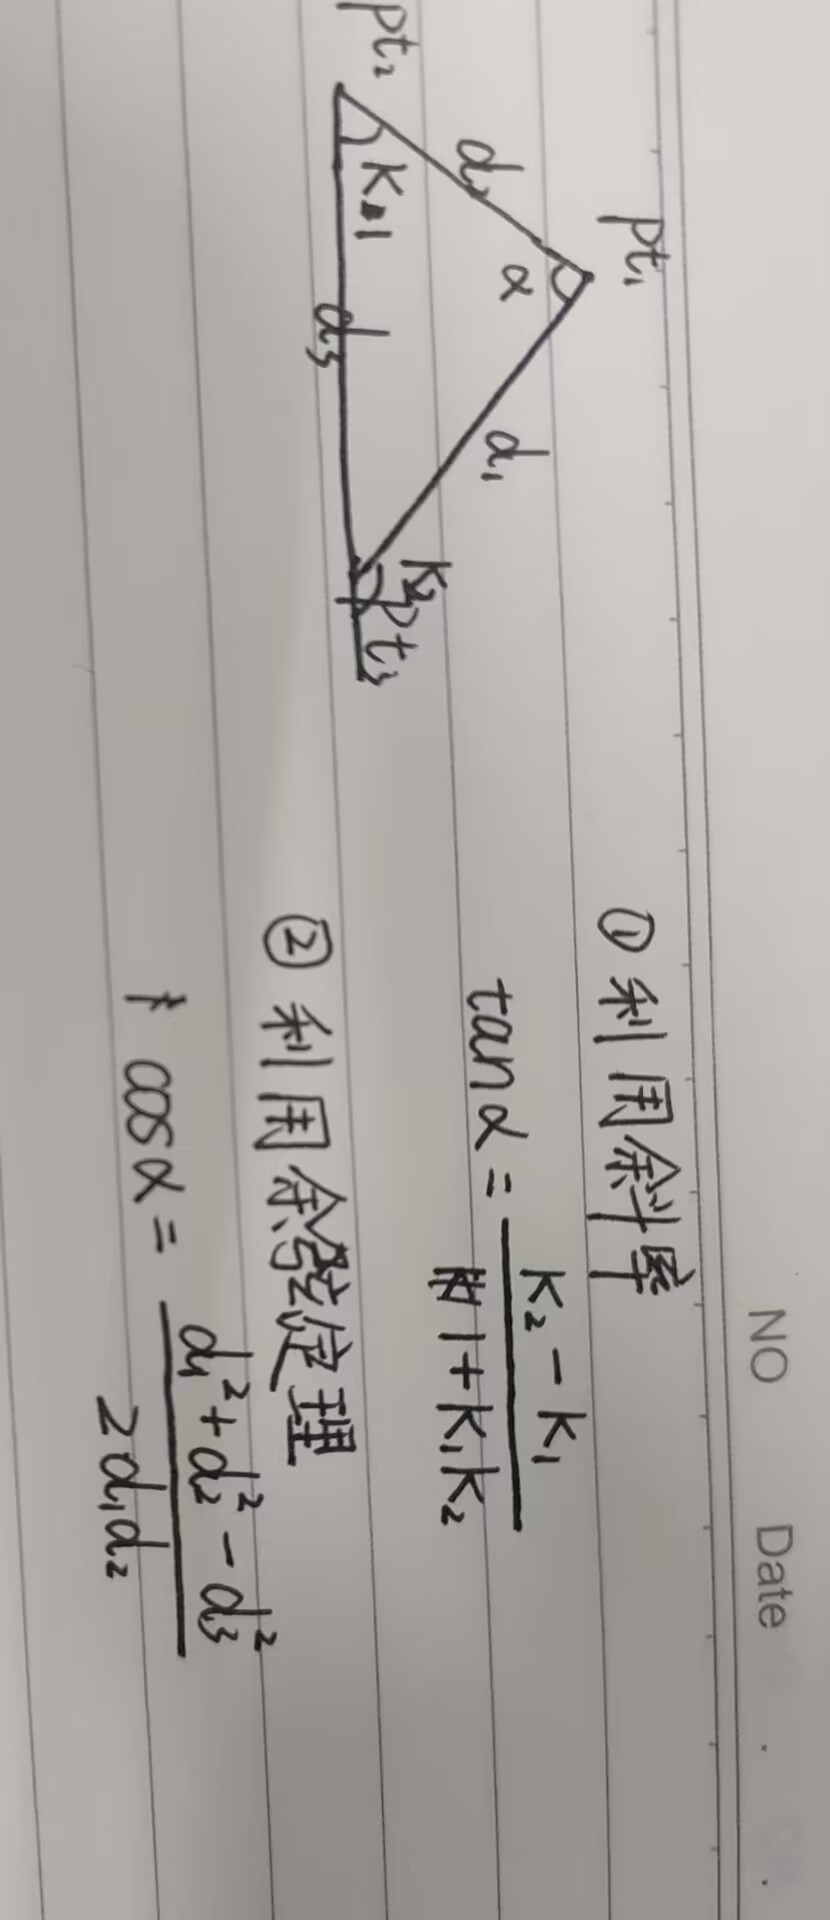 NO Date
pt₁
α
d₂
d₁
pt₂
k₁
k₂
d₃
pt₃
① 利用斜率
tanα = (k₂ - k₁) / (1 + k₁k₂)
② 利用余弦定理
cosα = (d₁² + d₂² - d₃²) / (2d₁d₂)